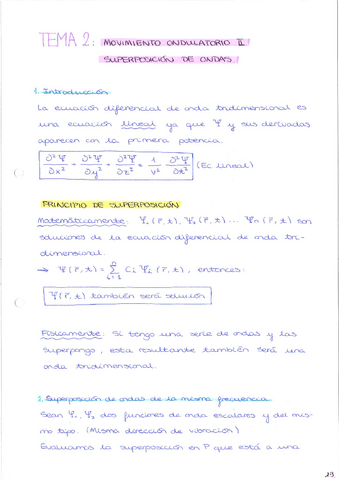 TEMA 2: MOVIMIENTO ONDULATORIO II
SUPERPOSICIÓN DE ONDAS.
1. Introducción
La ecuación diferencial de onda tridimensional es
una ecuación lineal ya que Ψ y sus derivadas
aparecen con la primera potencia.
∂²Ψ/∂x² + ∂²Ψ/∂y² + ∂²Ψ/∂z² = 1/v² ∂²Ψ/∂t² (Ec lineal)
PRINCIPIO DE SUPERPOSICIÓN
Matemáticamente: Ψ₁(r⃗,t), Ψ₂(r⃗,t)... Ψn(r⃗,t) son
soluciones de la ecuación diferencial de onda tri-
dimensional.
→ Ψ(r⃗,t) = Σ Ci Ψi (r⃗,t), entonces:
Ψ(r⃗,t) también será solución
Físicamente: Si tengo una serie de ondas y las
superpongo, esta resultante también será una
onda tridimensional.
2. Superposición de ondas de la misma frecuencia
Sean Ψ₁, Ψ₂ dos funciones de onda escalares y del mis-
mo tipo. (Misma dirección de vibración)
Evaluamos la superposición en P que está a una